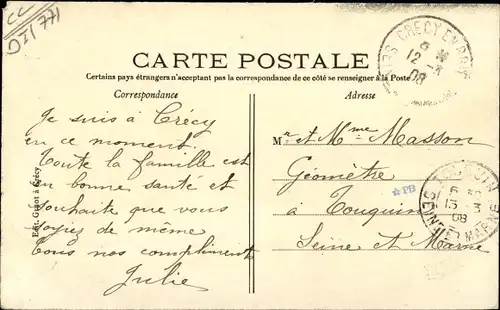 CC
OI1 771
CARTE POSTALE
Certains pays étrangers n'acceptant pas la correspondance de ce côté se renseigner à la Poste
Correspondance
Adresse
Je suis à Crécy
en ce moment.
Toute la famille est
en bonne santé et
souhaite que vous
soyez de même
Tous nos compliments
Julie
Mr et Mme Masson
Géomètre
à Touquin
Seine et Marne
CRECY EN BRIE
12
08
TOUQUIN
SEINE ET MARNE
6
13
08
PB
Edit. Gréot à Crécy